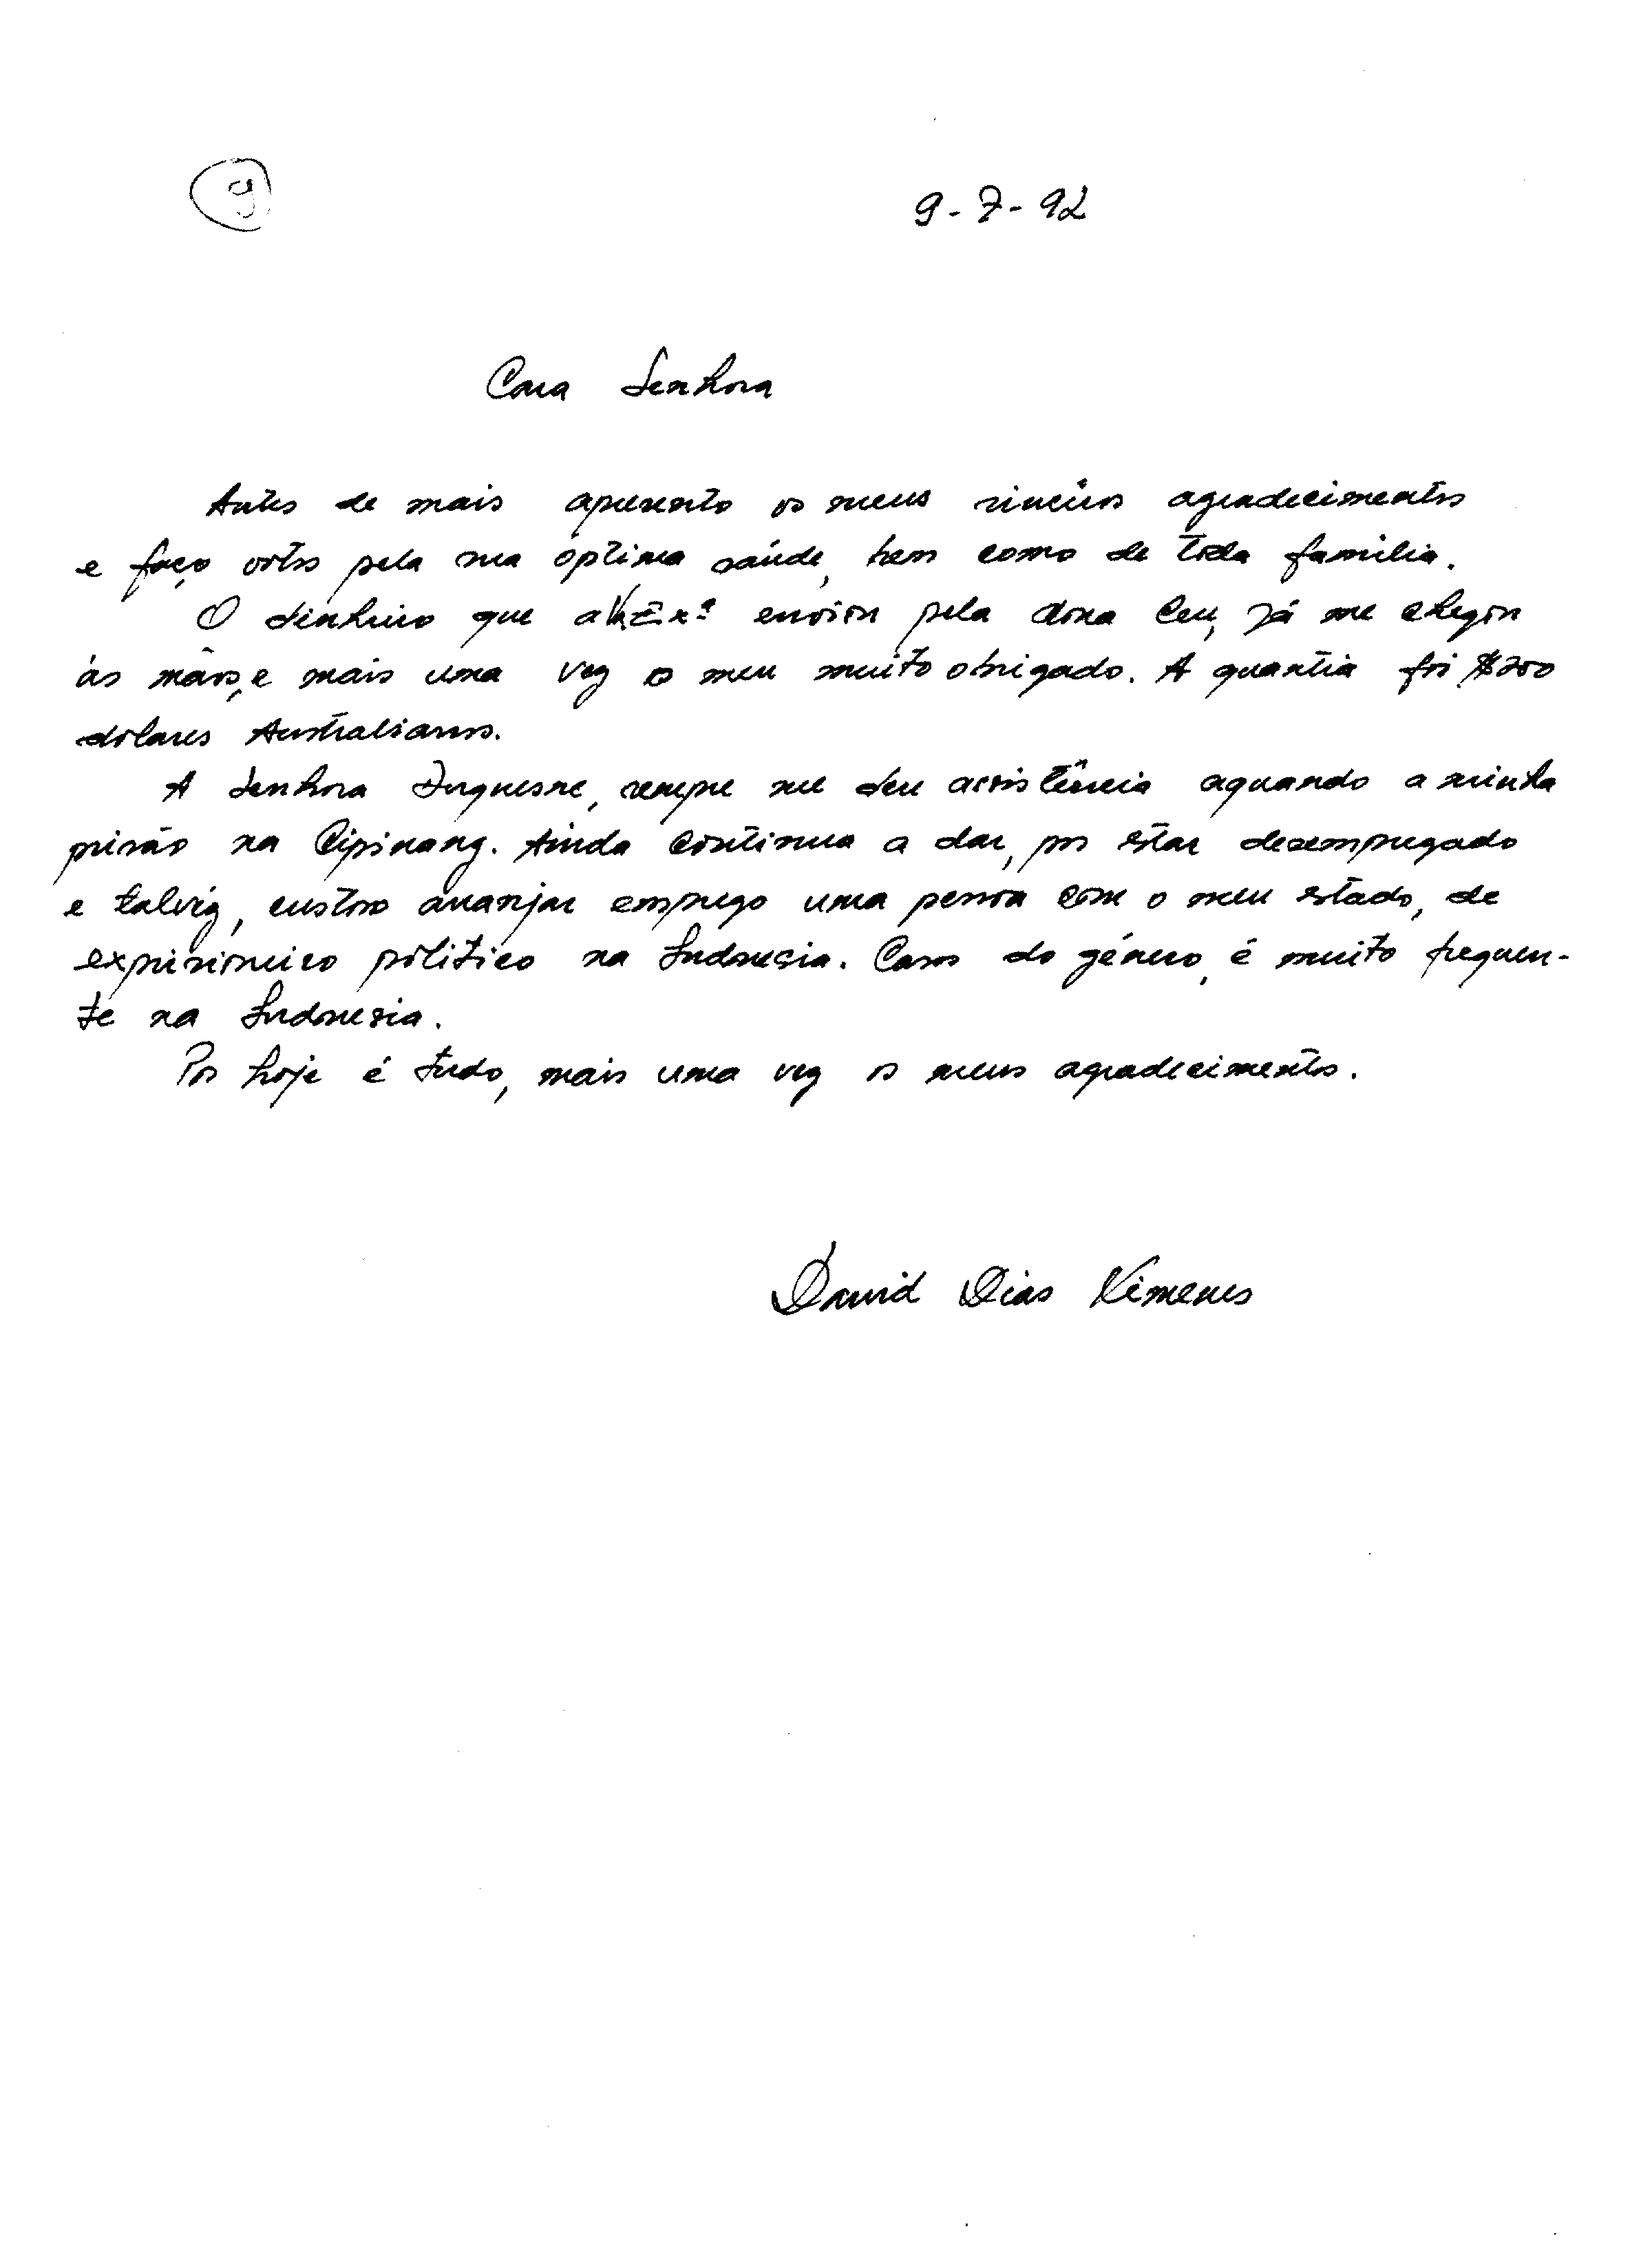 9
9-7-92
Cara Senhora
Antes de mais apresento os meus sinceros agradecimentos
e faço votos pela sua óptima saúde, bem como de toda familia.
O dinheiro que a V. Exª enviou pela dona Ceu, já me chegou
ás mãos, e mais uma vez o meu muito obrigado. A quantia foi $200
dolares Australianos.
A Senhora sempre me deu assistência aquando a minha
prisão na Cipinang. Ainda continua a dar, por estar desempregado
e talvez, custoso arranjar emprego uma pessoa com o meu estado, de
exprisioneiro politico na Indonesia. Casos do género, é muito frequen-
te na Indonesia.
Por hoje é tudo, mais uma vez os meus agradecimentos.
David Dias Ximenes